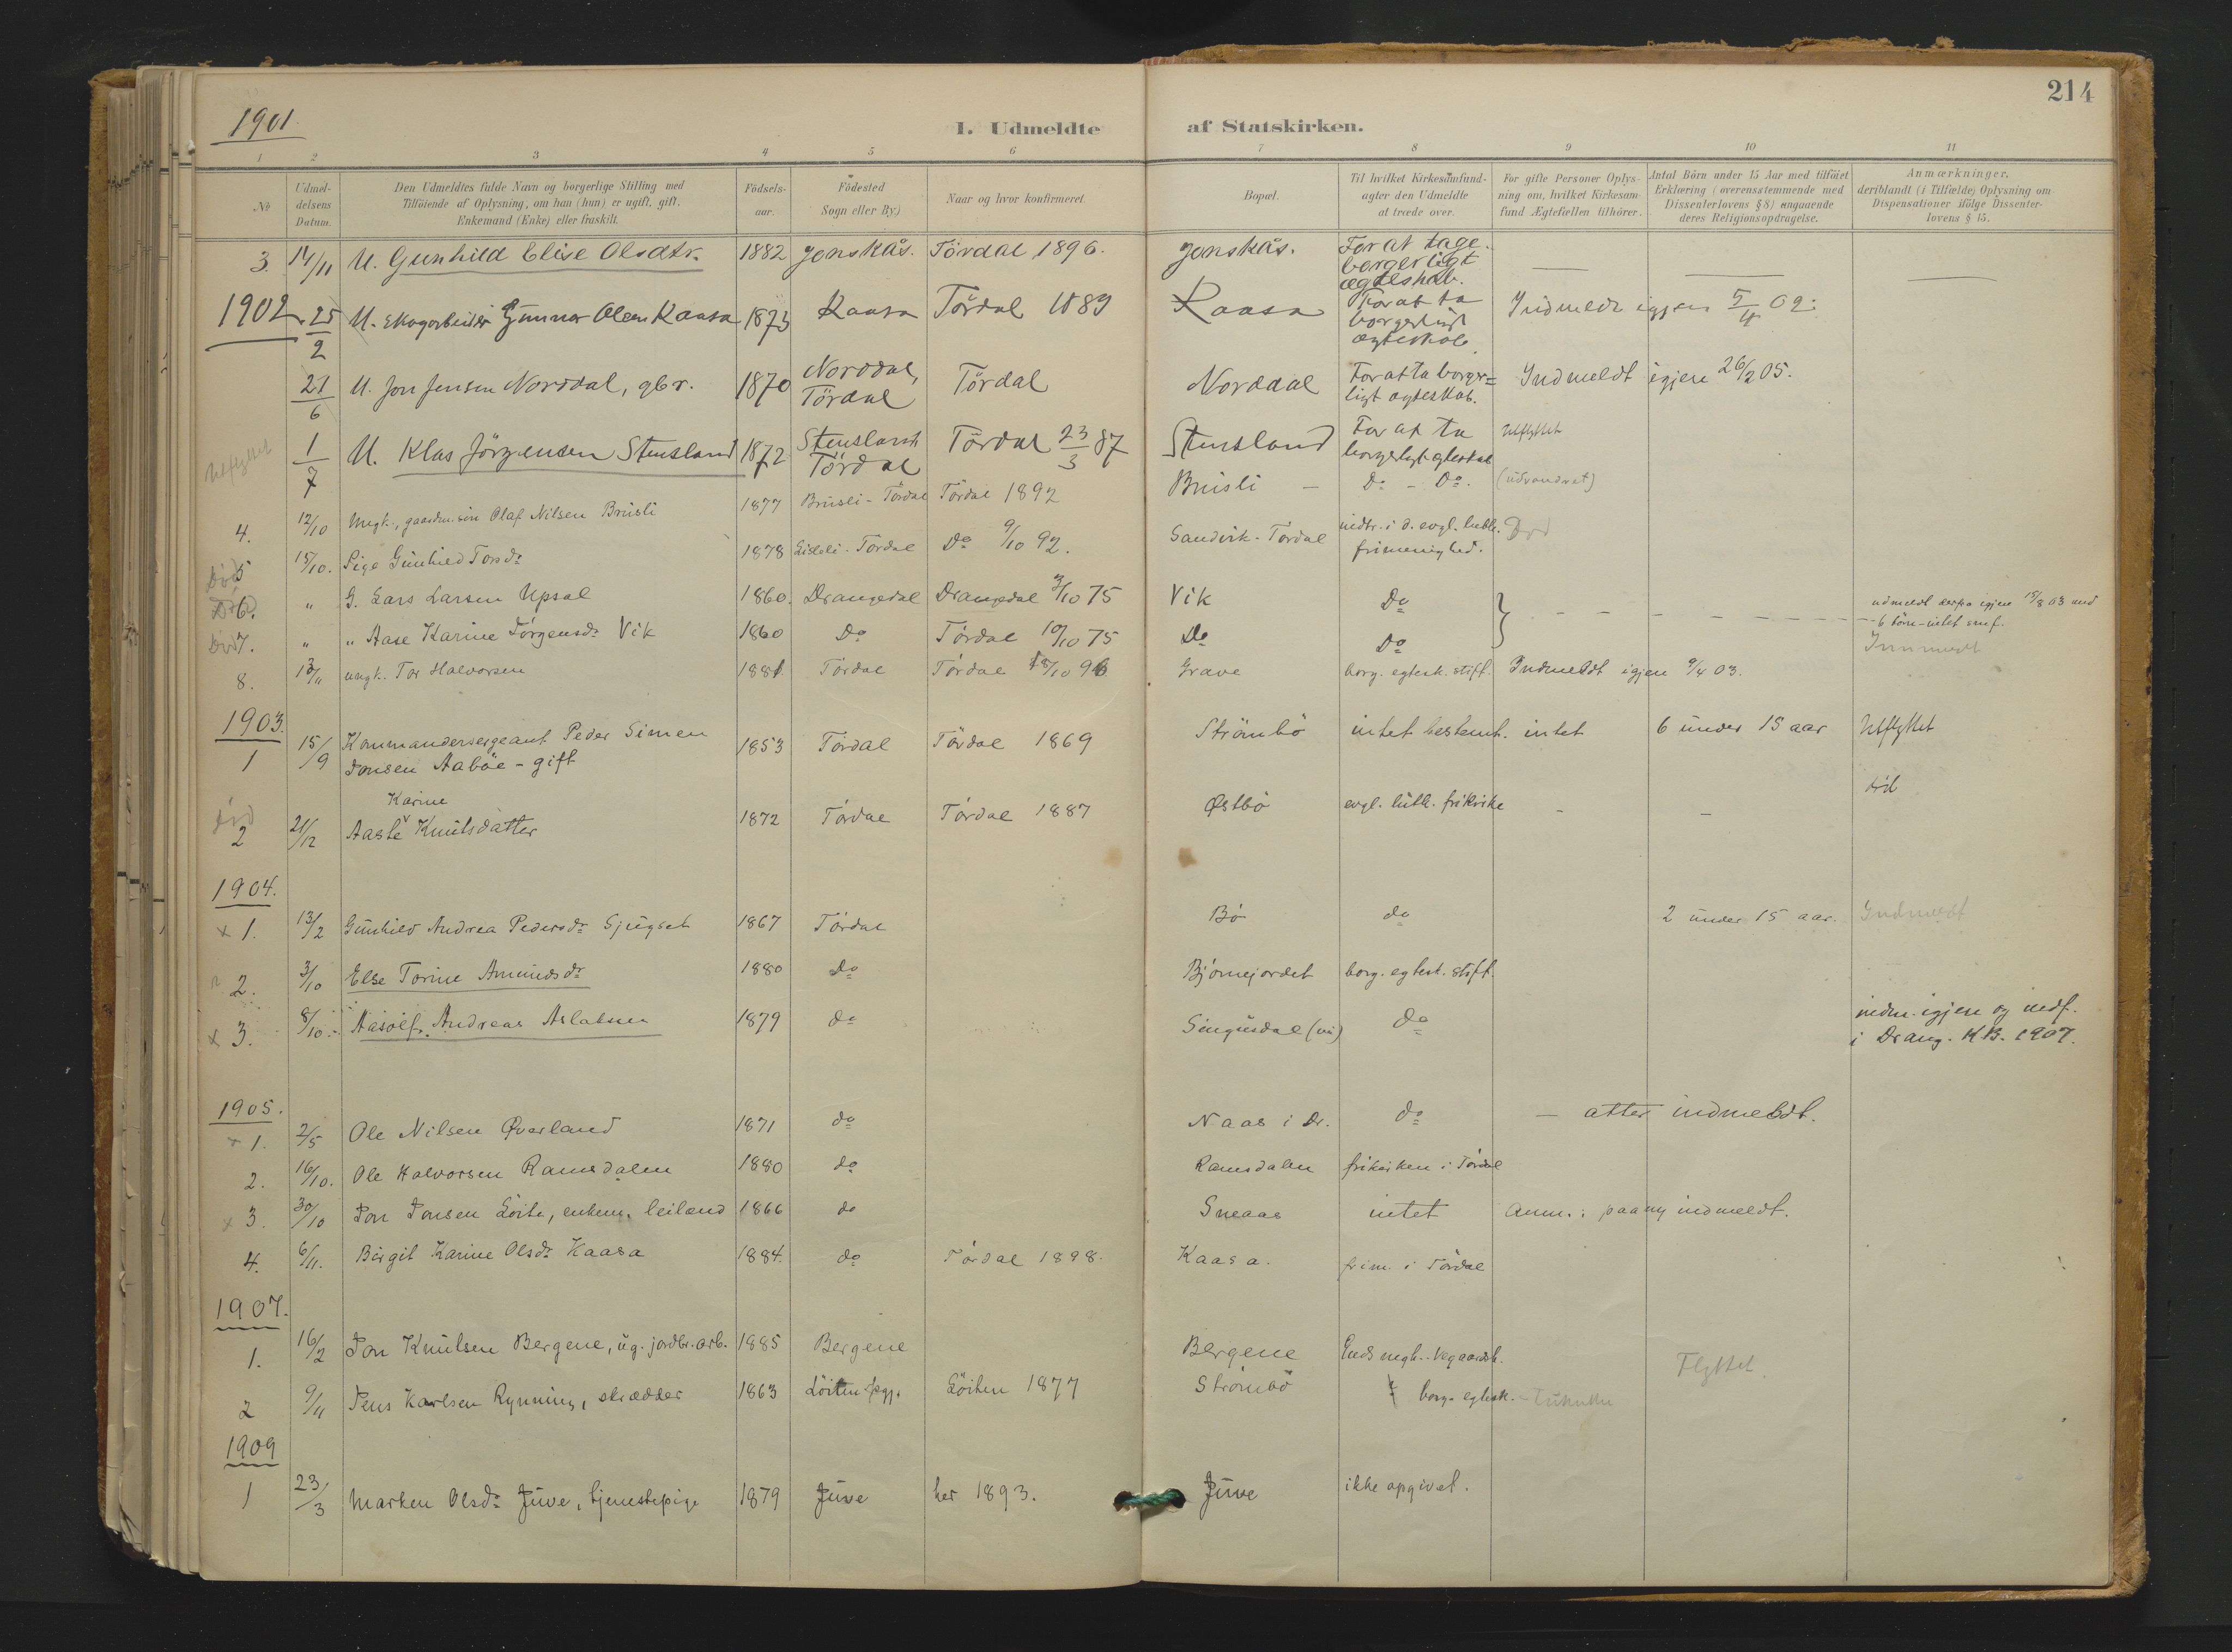 214
1901.
I. Udmeldte af Statskirken.
1 2 3 4 5 6 7 8 9 10 11
No
Udmeldelsens Datum.
Den Udmeldtes fulde Navn og borgerlige Stilling med
Tilføiende af Oplysning, om han (hun) er ugift, gift,
Enkemand (Enke) eller fraskilt.
Fødselsaar.
Fødested
Sogn eller By.)
Naar og hvor konfirmeret.
Bopæl.
Til hvilket Kirkesamfund
agter den Udmeldte
at træde over.
For gifte Personer Oplysning om, hvilket Kirkesamfund Ægtefællen tilhører.
Antal Börn under 15 Aar med tilføiet
Erklæring (overensstemmende med
Dissenterlovens § 8) angaaende
deres Religionsopdragelse.
Anmærkninger,
deriblandt (i Tilfælde) Oplysning om
Dispensationer ifølge Dissenterlovens § 15.
3. 14/11 U. Gunhild Elise Olsdtr. 1882 Jonskås. Tördal 1896. Jonskås. For at tage
borgerligt
ægteskab.
1902. 25/2 U. Skogarbeider Gunnar Olsen Kaasa 1873 Kaasa Tördal 1889 Kaasa For at ta
borgerligt
ægteskab. Indmeldt igjen 5/4 02.
21/6 U. Jon Jensen Norddal, gbr. 1870 Norddal,
Tördal Tördal Norddal For at ta borger=
ligt ægteskab. Indmeldt igjen 26/2 05.
Utflyttet 1/7 U. Klas Jörgensen Stensland 1872 Stensland
Tördal Tördal 23/3 87 Stensland For at ta
borgerligt egteskab Utflyttet
4. 12/10 Ungk., gaardm.sön Olaf Nilsen Brüsli 1877 Brüsli - Tördal Tördal 1892 Brüsli - Do - Do. (udvandret)
Död 5 15/10. Pige Gunhild Torsdr 1878 Tördal Do 9/10 92. Sandvik - Tördal indtr. i d. evgl. luth.
frimenighed. Död
Död 6. " G. Lars Larsen Upsal 1860. Drangedal Drangedal 3/10 75 Vik Do udmeldt derfra igjen 15/8 03 med
Död 7. " " Aase Karine Jörgensdr Vik 1860 Do Tördal 10/10 75 Do Do 6 börn - intet smf.
Innmeldt
8. 13/11 ungk. Tor Halvorsen 1881 Tördal Tördal 18/10 96 Grave borg. egtesk. stift. Indmeldt igjen 9/4 03.
1903.
1 15/9 Kommandersergeant Peder Simen
Jonsen Aaböe - gift 1853 Tördal Tördal 1869 Strömbö intet bestemt. intet 6 under 15 aar Utflyttet
Död 2 21/12 Aaste Karine Knütsdatter 1872 Tördal Tördal 1887 Østbö evgl. lüth. frikirke - - död
1904.
x 1. 13/2 Günhild Andrea Pedersdr Sjügset 1867 Tördal Bö do 2 ünder 15 aar. Indmeldt
2. 3/10 Else Torine Amündsdr 1880 Do Björnejordet borg. egtesk. stift.
x 3. 8/10 Aasolf Andreas Aslaksen 1879 do Singüsdal do indm. igjen og indf.
i Drang. KB. 1907.
1905.
x 1. 2/5 Ole Nilsen Øverland 1871 do Naas i Dr. do - atter indmeldt.
2. 16/10. Ole Halvorsen Ramsdalen 1880 do Ramsdalen frikirken i Tördal
x 3. 30/10 Jon Jonsen Löite, enkem. leiland 1866 do Sneaas intet Anm.: paany indmeldt.
4. 6/11. Birgit Karine Olsdr Kaasa 1884. do Tördal 1898. Kaasa. frim. i Tördal
1907.
1. 16/2 Jon Knütsen Bergene, üg. jordbr. arb. 1885 Bergene Bergene Guds megh. Vegaardsh. Flyttet
2 9/11 Jens Karlsen Rynning, skrædder 1863 Löiten Löiten 1877 Strömbö borg. egtesk.
1909
1 23/3 Marken Olsdr Jüve, tjenestepige 1879 Jüve her 1893. Jüve ikke opgivet.